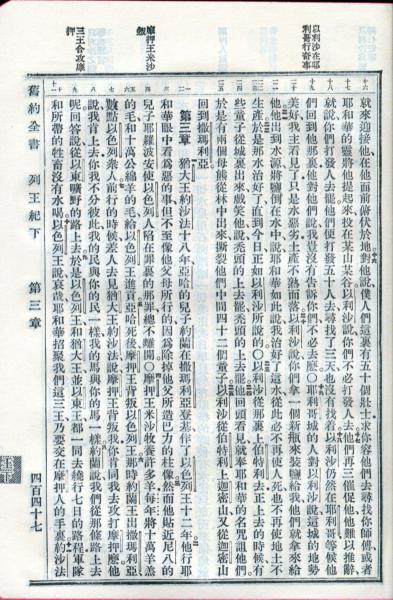 以利沙在耶
利哥行奇事
摩押王米沙
叛
三王合攻摩
押
就來迎接他在他面前俯伏於地對他說僕人們這裏有五十個壯士求你容他們去尋找你師傅或者
耶和華的靈將他提起來投在某山某谷以利沙說你們不必打發人去他們再三催促他他難以推辭
就說你們打發人去罷他們便打發五十人去尋找了三天也沒有找着以利沙仍然在耶利哥等候他
們回到他那裏他對他們說我豈沒有告訴你們不必去麽○耶利哥城的人對以利沙說這城的地勢
美好我主看見了只是水惡劣土產不熟而落以利沙說你們拿一個新瓶來裝鹽給我他們就拿來給
他他出到水源將鹽倒在水中說耶和華如此說我治好了這水從此必不再使人死也不再使地土不
生產於是那水治好了直到今日正如以利沙所說的○以利沙從那裏上伯特利去正上去的時候有
些童子從城裏出來戲笑他說禿頭的上去罷禿頭的上去罷他回頭看見就奉耶和華的名咒詛他們
於是有兩個母熊從林中出來撕裂他們中間四十二個童子以利沙從伯特利上迦密山又從迦密山
回到撒瑪利亞
第三章 猶大王約沙法十八年亞哈的兒子約蘭在撒瑪利亞登基作了以色列王十二年他行耶
和華眼中看爲惡的事但不至像他父母所行的因爲除掉他父所造巴力的柱像然而他貼近尼八的
兒子耶羅波安使以色列人陷在罪裏的那罪總不離開○摩押王米沙牧養許多羊每年將十萬羊羔
的毛和十萬公綿羊的毛給以色列王進貢亞哈死後摩押王背叛以色列王那時約蘭王出撒瑪利亞
數點以色列衆人前行的時候差人去見猶大王約沙法說摩押王背叛我你肯同我去攻打摩押麽他
說我肯上去你我不分彼此我的民與你的民一樣我的馬與你的馬一樣約蘭說我們從那條路上去
呢回答說從以東曠野的路上去於是以色列王和猶大王並以東王都一同去繞行七日的路程軍隊
和所帶的牲畜沒有水喝以色列王說哀哉耶和華招聚我們這三王乃要交在摩押人的手裏約沙法
舊約全書 列王紀下 第三章 四百四十七